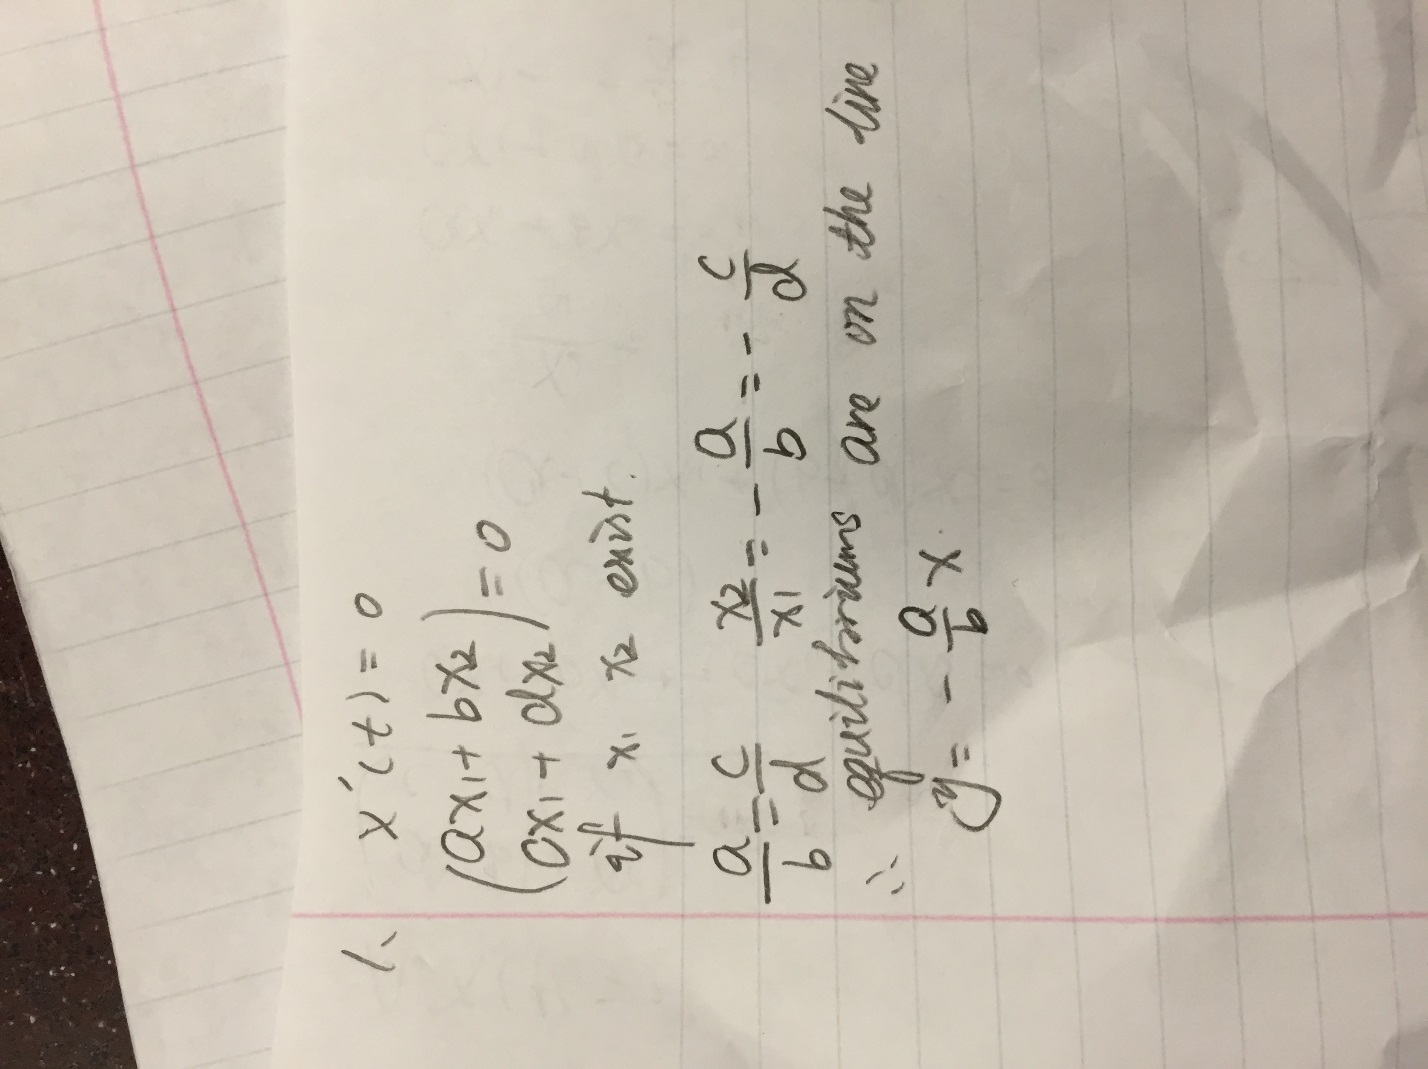 1、 x'(t) = 0
(ax1 + bx2
cx1 + dx2) = 0
if x1 x2 exist.
a/b = c/d x2/x1 = - a/b = - c/d
∴ equilibriums are on the line
y = - a/b x